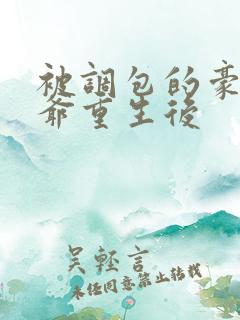 被調包的豪
爺重生後
吴輕言
未經同意禁止轉載